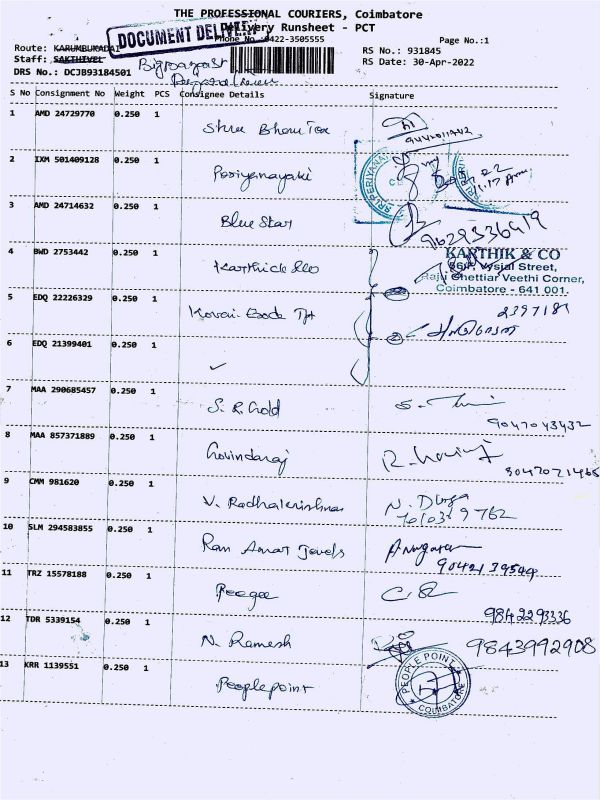 THE PROFESSIONAL COURIERS, Coimbatore
Delivery Runsheet - PCT
DOCUMENT DELIVERY
Phone No.:0422-3505555
Page No.:1
Route: KARUMBUKADAI
RS No.: 931845
Staff: SAKTHIVEL
RS Date: 30-Apr-2022
DRS No.: DCJB93184501
S No Consignment No Weight PCS Consignee Details Signature
1 AMD 24729770 0.250 1
2 IXM 501409128 0.250 1 Periyanayaki
3 AMD 24714632 0.250 1 Blue Star
9629336919
4 BWD 2753442 0.250 1
KARTHIK & CO
Vysial Street,
Chettiar Veethi Corner,
Coimbatore - 641 001.
5 EDQ 22226329 0.250 1
6 EDQ 21399401 0.250 1 ✓
7 MAA 290685457 0.250 1 S.R. Gold
9047043432
8 MAA 857371889 0.250 1 Govindaraj
9 CMM 981620 0.250 1 V. Radhakrishnan N. Durga
10 SLM 294583855 0.250 1 Ram Amar Jewels
11 TRZ 15578188 0.250 1 Peegee
9842293336
12 TDR 5339154 0.250 1 N. Ramesh 9843992908
13 KRR 1139551 0.250 1 Peoplepoint
PEOPLE POINT
COIMBATORE